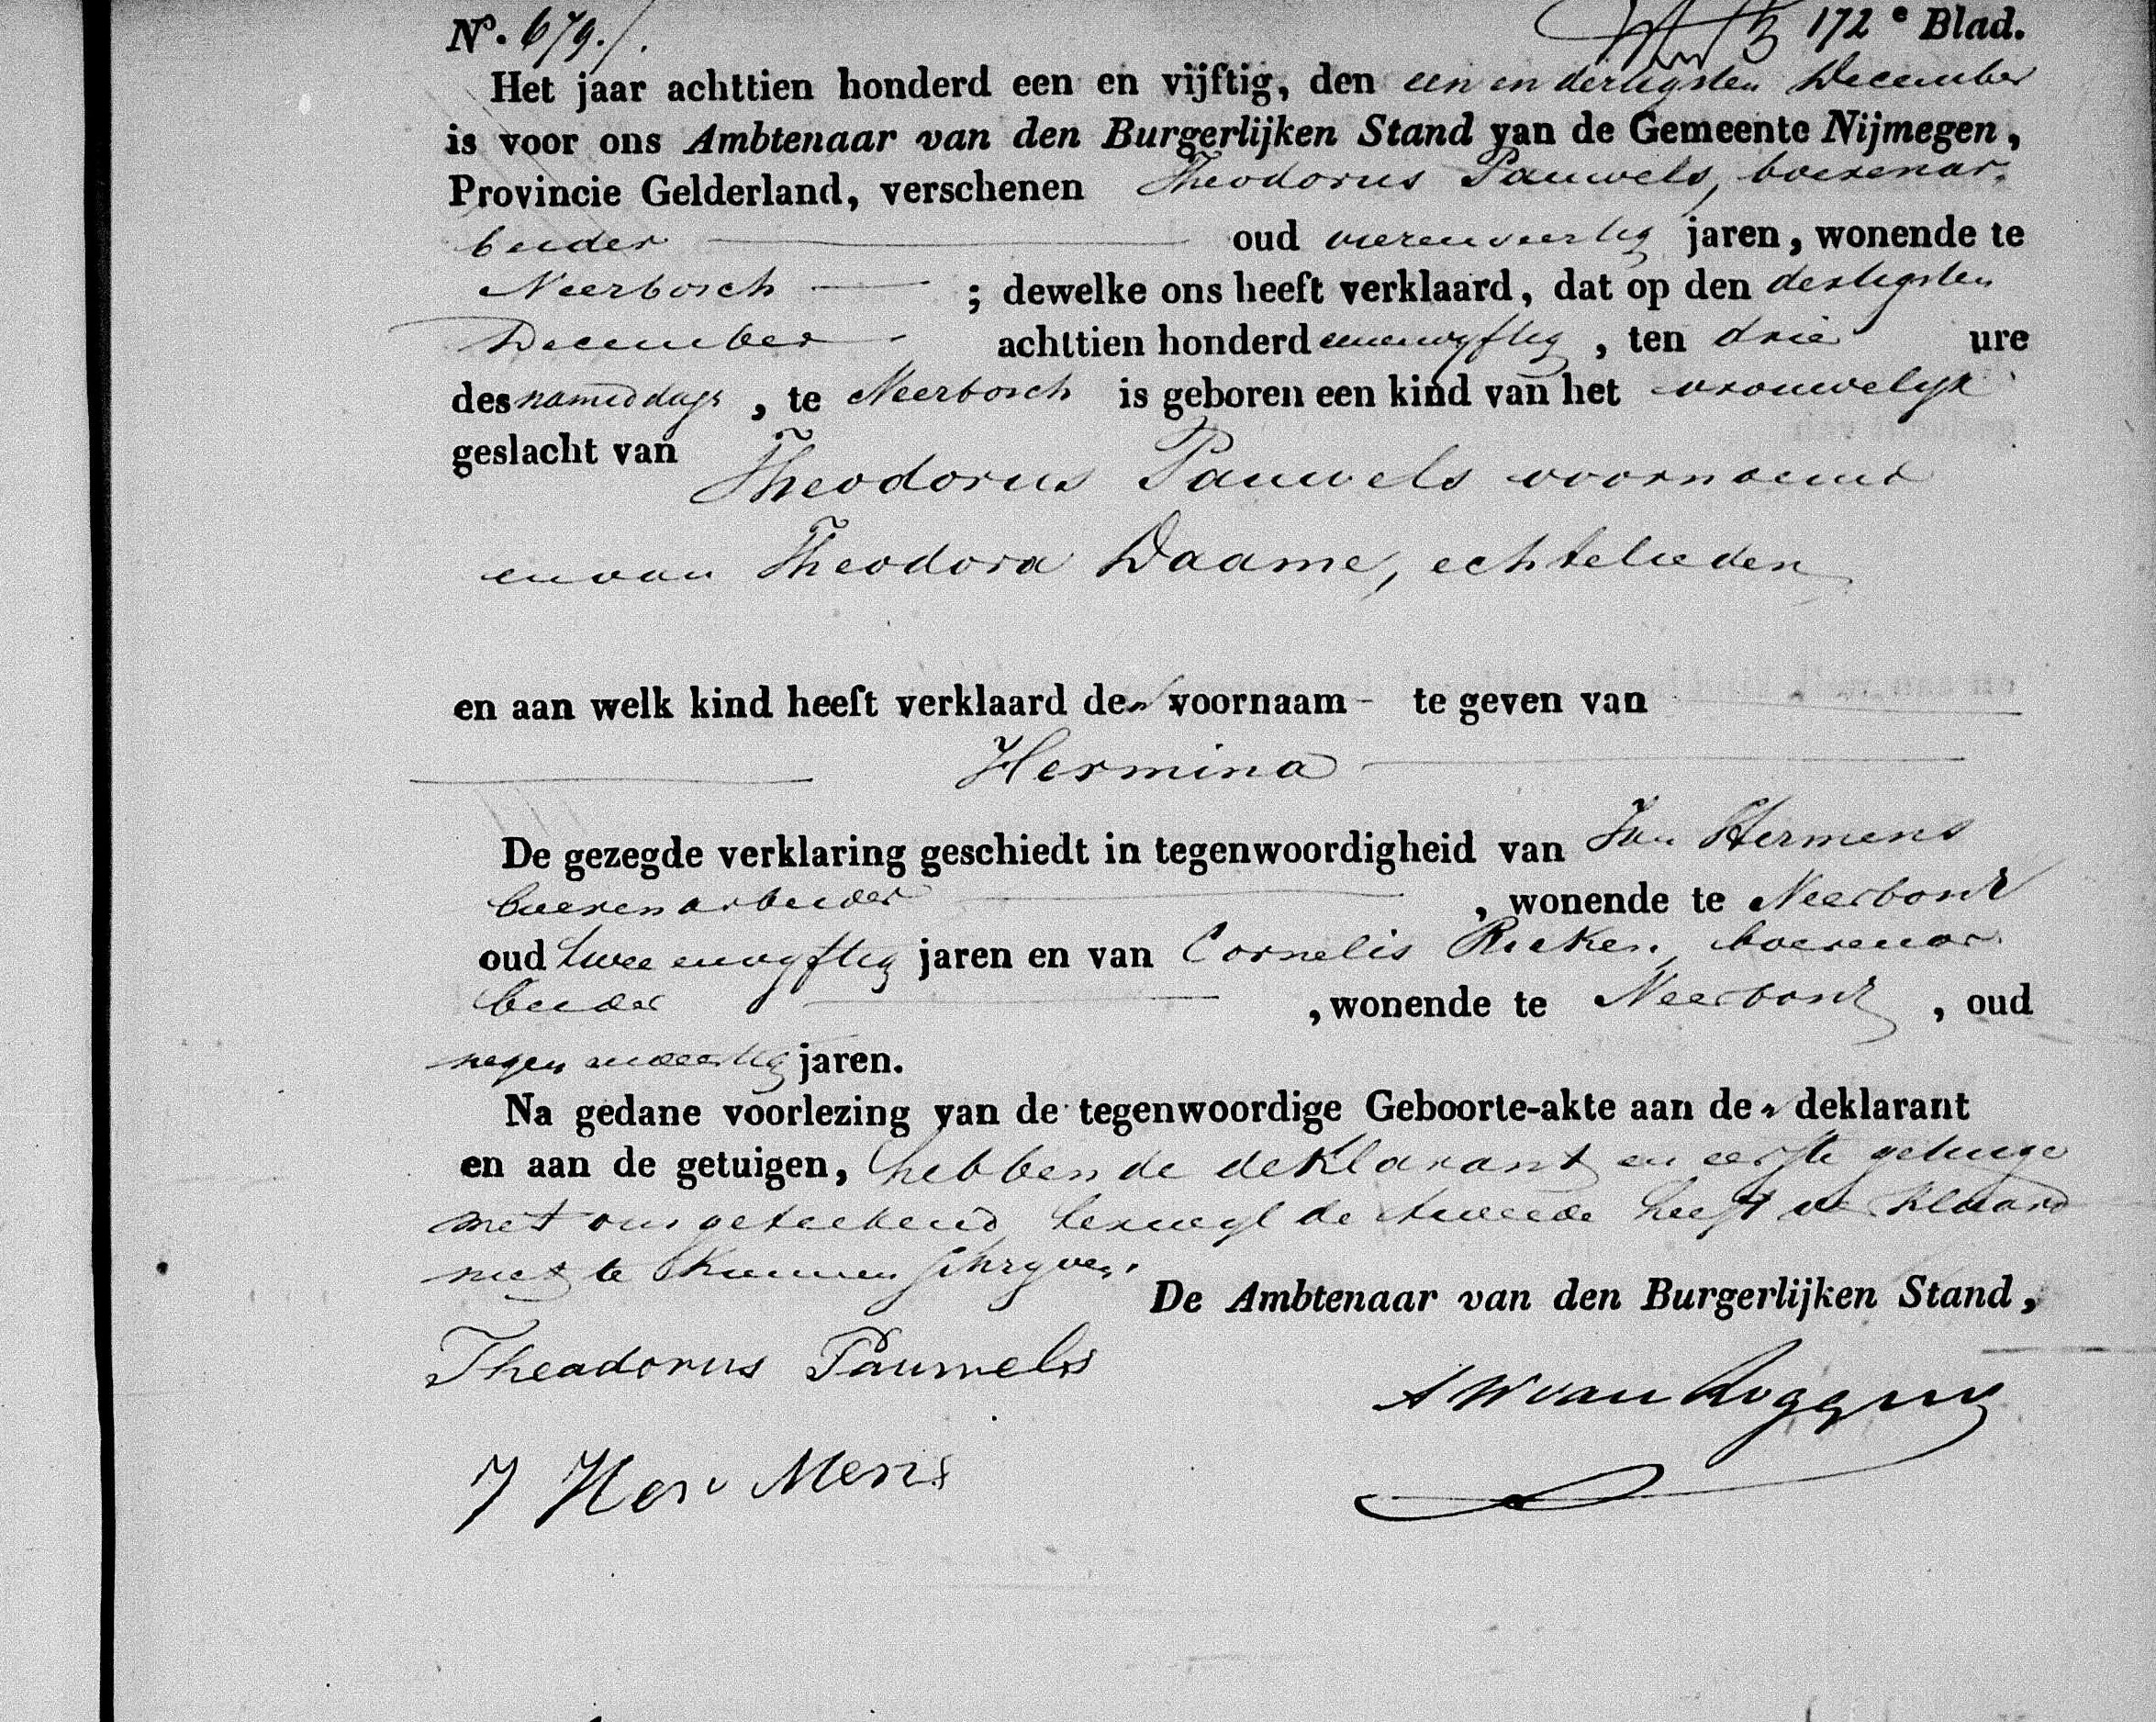 N°. 679. 172e Blad.
Het jaar achttien honderd een en vijftig, den een en dertigsten December
is voor ons Ambtenaar van den Burgerlijken Stand van de Gemeente Nijmegen,
Provincie Gelderland, verschenen Theodorus Pauwels, boerenar-
beider oud vierenveertig jaren, wonende te
Neerbosch ; dewelke ons heeft verklaard, dat op den dertigsten
December achttien honderd eenenvyftig, ten drie ure
des namiddags, te Neerbosch is geboren een kind van het vrouwelyk
geslacht van Theodorus Pauwels voornoemd
en van Theodora Daame, echtelieden
en aan welk kind heeft verklaard den voornaam - te geven van
Hermina
De gezegde verklaring geschiedt in tegenwoordigheid van Jan Hermens
boerenarbeider, wonende te Neerbosch
oud twee envyftig jaren en van Cornelis boerenar-
beider, wonende te Neerbosch, oud
negen jaren.
Na gedane voorlezing van de tegenwoordige Geboorte-akte aan den deklarant
en aan de getuigen, hebben de deklarant en eerste getuige
met ons geteekend, terwyl de tweede heeft verklaard
niet te kunnen schryven.
De Ambtenaar van den Burgerlijken Stand,
Theadorus Pauwels
J Her Mens